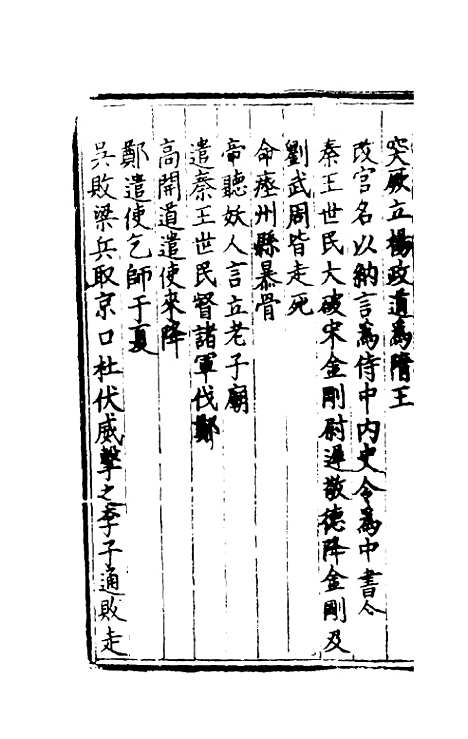 突厥立楊政道為隋王
改官名以納言為侍中内史令為中書令
秦王世民大破宋金剛尉遲敬德降金剛及
劉武周皆走死
命瘞州縣暴骨
帝聽妖人言立老子廟
遣秦王世民督諸軍伐鄭
高開道遣使來降
鄭遣使乞師于夏
吳敗梁兵取京口杜伏威擊之李子通敗走